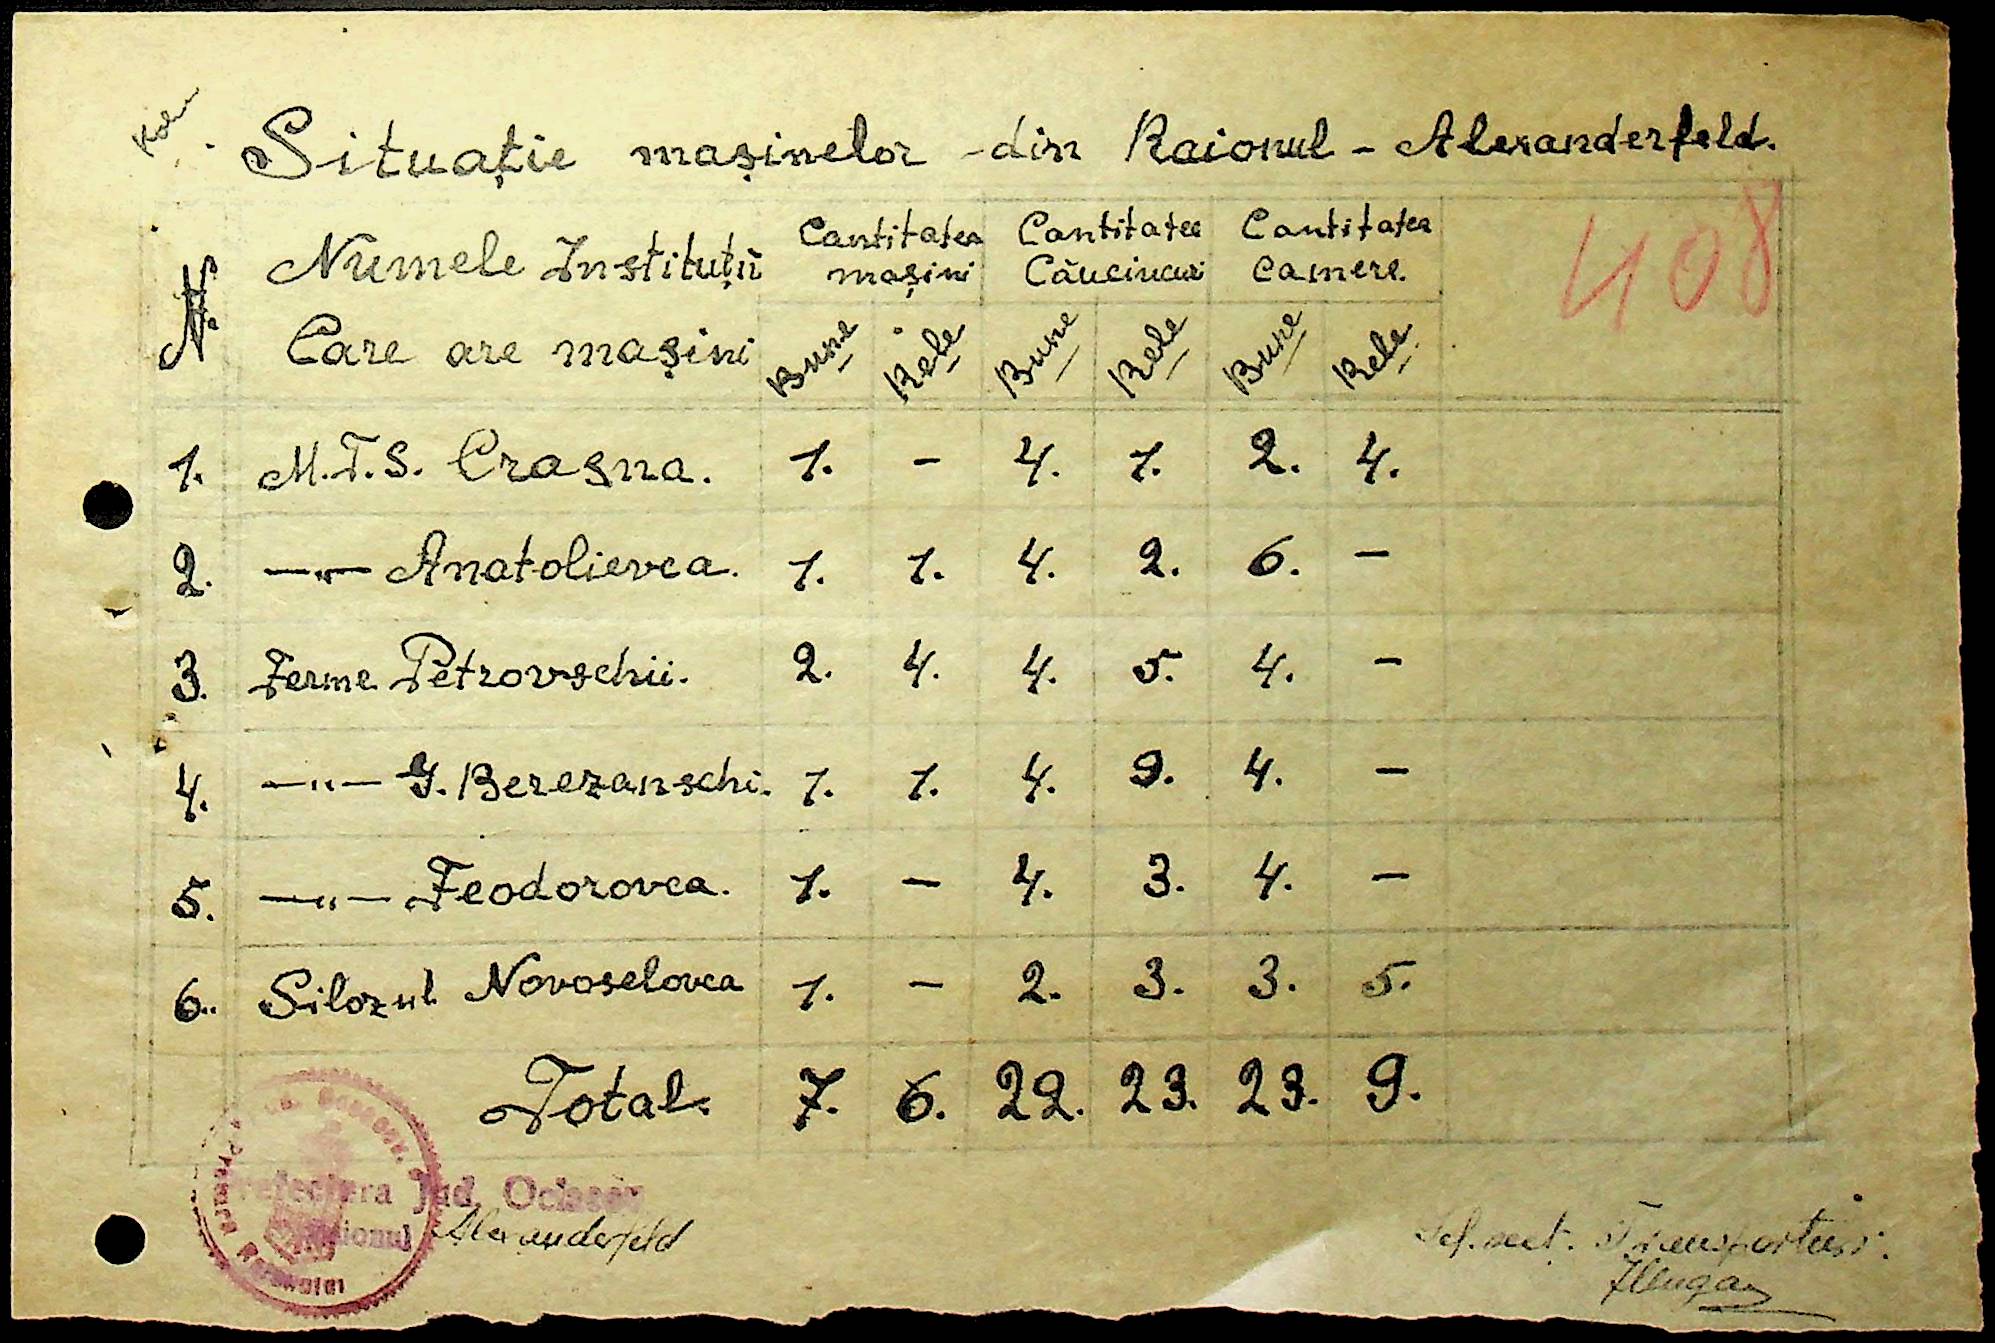 Situație mașinelor - din Raionul - Alexanderfeld.
408
№ Numele Instituții Care are mașini Cantitatea mașini Cantitatea Căuciucuri Cantitatea Camere.
Bune Rele Bune Rele Bune Rele.
1. M.T.S. Crasna. 1. - 4. 1. 2. 4.
2. —"— Anatolievca. 1. 1. 4. 2. 6. -
3. Ferme Petrovschii. 2. 4. 4. 5. 4. -
4. —"— G. Berezanschi. 1. 1. 4. 9. 4. -
5. —"— Feodorovca. 1. - 4. 3. 4. -
6. Silozul Novoselovca 1. - 2. 3. 3. 5.
Total. 7. 6. 22. 23. 23. 9.
Prefectura Jud.
Raionul Alexanderfeld
Șef. sect. Transportului.